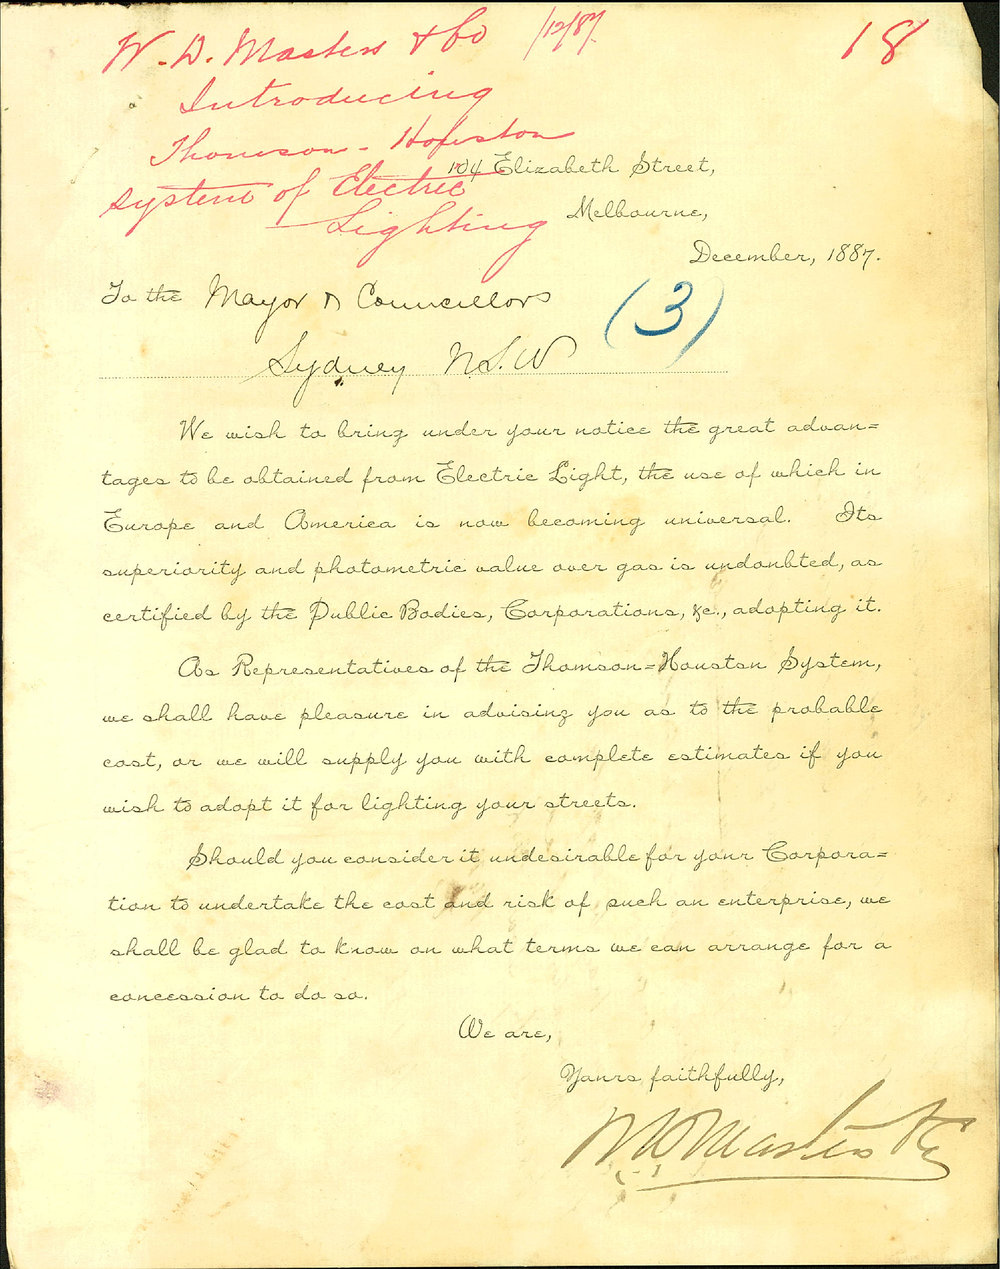 W. D. Masters & Co /12/87.
18
Introducing
Thomson - Houston
System of Electric
Lighting
104 Elizabeth Street,
Melbourne,
December, 1887.
To the Mayor & Councillors
(3)
Sydney N.S.W
We wish to bring under your notice the great advan=
tages to be obtained from Electric Light, the use of which in
Europe and America is now becoming universal. Its
superiority and photometric value over gas is undoubted, as
certified by the Public Bodies, Corporations, &c., adopting it.
As Representatives of the Thomson=Houston System,
we shall have pleasure in advising you as to the probable
cost, or we will supply you with complete estimates if you
wish to adopt it for lighting your streets.
Should you consider it undesirable for your Corpora=
tion to undertake the cost and risk of such an enterprise, we
shall be glad to know on what terms we can arrange for a
concession to do so.
We are,
Yours faithfully,
W D Masters & Co